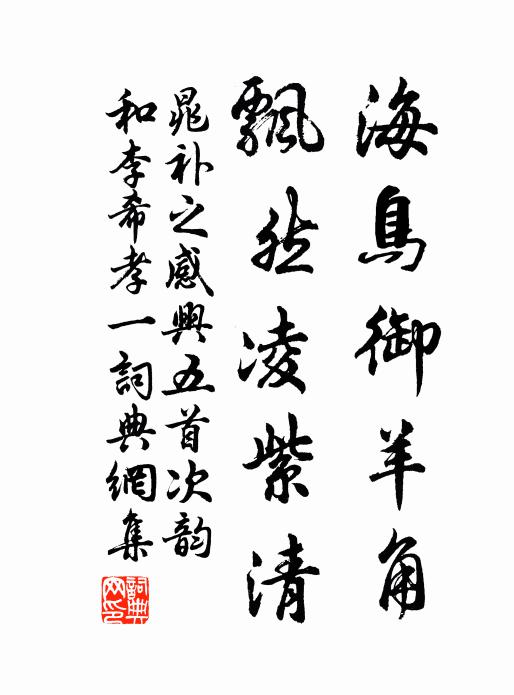 海鳥御羊角
飄然凌紫清
晁補之感興五首次韵
和李希孝一詞典網集
詞典网印